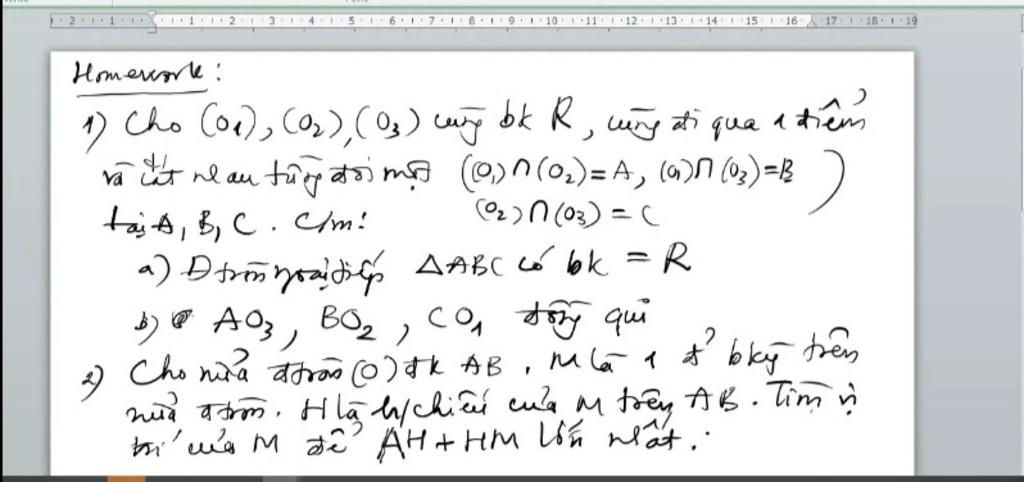 Homework:
1) Cho (O1), (O2), (O3) cùng bk R, cùng đi qua 1 điểm
và cắt nhau từng đôi một ((O1)∩(O2)=A, (O1)∩(O3)=B
tại A, B, C. C/m: (O2)∩(O3)=C)
a) Đtròn ngoại tiếp ΔABC có bk = R
b) AO3, BO2, CO1 đồng qui
2) Cho nửa đtròn (O) đk AB, M là 1 đ' bkỳ trên
nửa đtròn. H là h/chiếu của M trên AB. Tìm vị
trí của M để AH + HM lớn nhất.